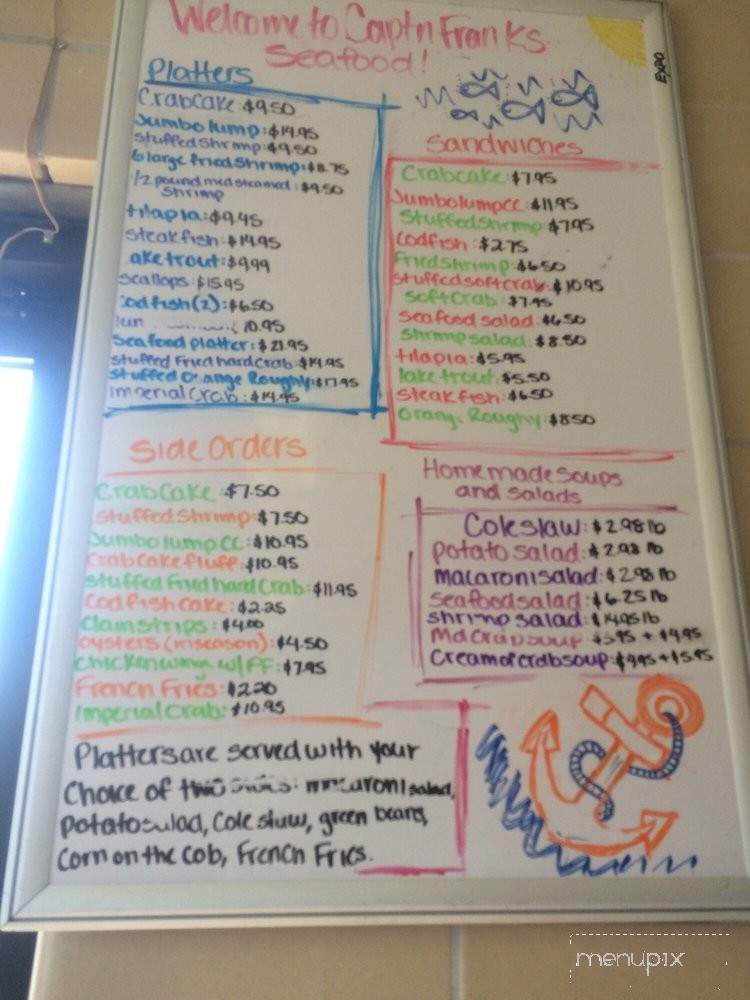 Welcome to Captn Franks
Seafood!
EXPO
Platters
Crabcake: $9.50
Jumbo lump: $14.95
Stuffed Shrimp: $9.50
6 large fried shrimp: $8.75
1/2 pound med steamed: $9.50
Shrimp
tilapia: $9.45
Steakfish: $14.95
ake trout: $9.99
Scallops: $15.95
Codfish (2): $6.50
10.95
Seafood platter: $21.95
Stuffed Fried hard Crab: $14.95
Stuffed Orange Roughy: $17.95
Imperial Crab: $14.95
Sandwiches
Crabcake: $7.95
Jumbo lump CC: $11.95
Stuffed Shrimp: $7.95
Codfish: $2.75
Fried Shrimp: $6.50
Stuffed soft crab: $10.95
Soft Crab: $7.95
Seafood salad: $6.50
Shrimp salad: $8.50
tilapia: $5.95
lake trout: $5.50
Steakfish: $6.50
Orange Roughy: $8.50
Side Orders
Crab Cake: $7.50
Stuffed Shrimp: $7.50
Jumbo lump CC: $10.95
Crab Cake Fluff: $10.95
Stuffed Fried hard Crab: $11.95
Codfish Cake: $2.25
Clam strips: $4.00
Oysters (in season): $4.50
Chicken wing w/ FF: $7.95
French Fries: $2.20
Imperial Crab: $10.95
Homemade Soups
and Salads
Coleslaw: $2.98 lb
potato salad: $2.98 lb
macaroni salad: $2.98 lb
Seafood salad: $6.25 lb
Shrimp salad: $14.95 lb
Md Crab soup $3.95 + $4.95
Cream of crab soup: $4.95 + $5.95
Platters are served with your
Choice of two sides: macaroni salad,
potato salad, Cole slaw, green beans,
Corn on the cob, French Fries.
menupix